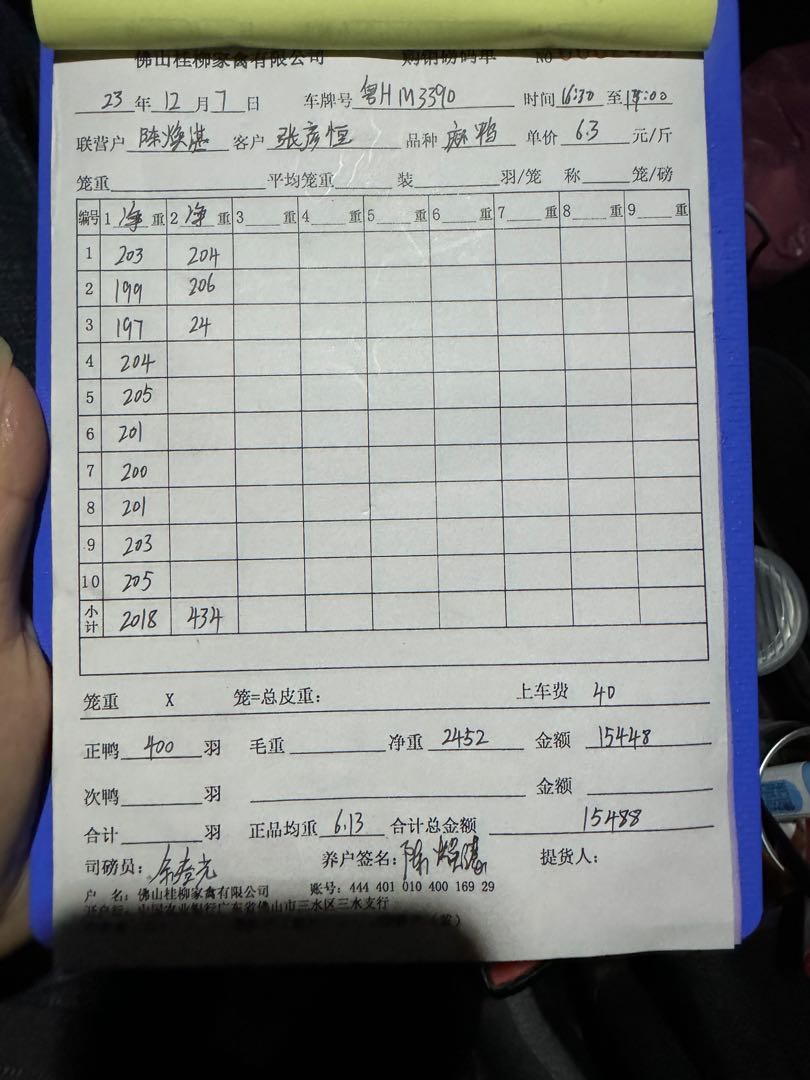 佛山桂柳家禽有限公司 购销磅码单 No
23 年 12 月 7 日 车牌号 粤H M3390 时间 16:30 至 18:00
联营户 陈焕湛 客户 张彦恒 品种 麻鸭 单价 6.3 元/斤
笼重 平均笼重 装 羽/笼 称 笼/磅
编号 1 净 重 2 净 重 3 重 4 重 5 重 6 重 7 重 8 重 9 重
1 203 204
2 199 206
3 197 24
4 204
5 205
6 201
7 200
8 201
9 203
10 205
小计 2018 434
笼重 X 笼=总皮重： 上车费 40
正鸭 400 羽 毛重 净重 2452 金额 15448
次鸭 羽 金额
合计 羽 正品均重 6.13 合计总金额 15488
司磅员： 养户签名： 提货人：
户 名：佛山桂柳家禽有限公司 账号：444 401 010 400 169 29
开户行：中国农业银行广东省佛山市三水区三水支行